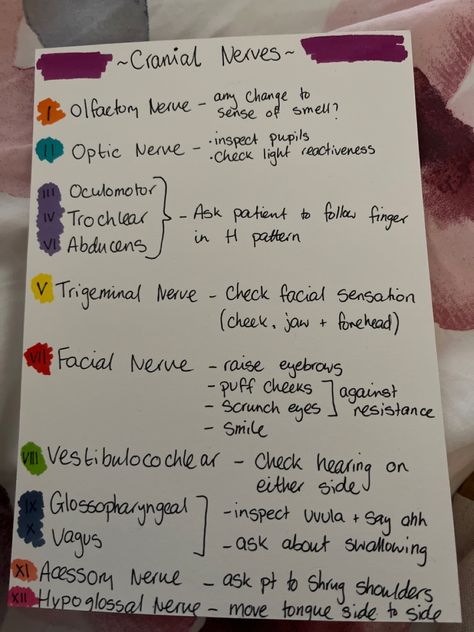 ~Cranial Nerves~
I Olfactory Nerve - any change to
sense of smell?
II Optic Nerve - • inspect pupils
• check light reactiveness
III Oculomotor
IV Trochlear - Ask patient to follow finger
VI Abducens in H pattern
V Trigeminal Nerve - Check facial sensation
(cheek, jaw + forehead)
VII Facial Nerve - raise eyebrows
- puff cheeks against
- scrunch eyes resistance
- smile
VIII Vestibulocochlear - Check hearing on
either side
IX Glossopharyngeal - inspect uvula + say ahh
X Vagus - ask about swallowing
XI Acessory Nerve - ask pt to shrug shoulders
XII Hypoglossal Nerve - move tongue side to side